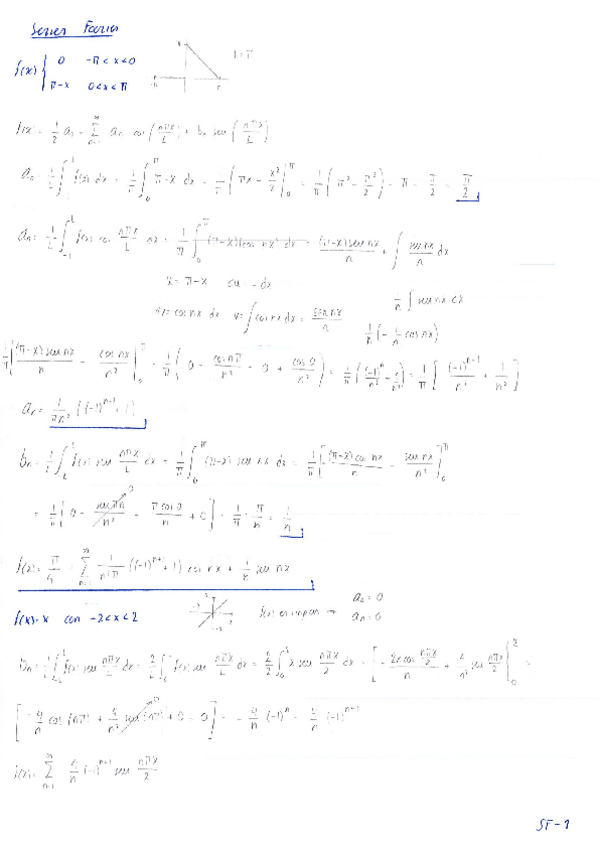 Series Fourier
f(x) { 0 -π < x < 0
π-x 0 < x < π
L = π
f(x) = 1/2 a₀ + ∑_{n=1}^{∞} aₙ cos (nπx/L) + bₙ sen (nπx/L)
a₀ = 1/L ∫_{-L}^{L} f(x) dx = 1/π ∫_0^π π-x dx = 1/π (πx - x²/2 |_0^π = 1/π (π² - π²/2) = π - π/2 = π/2
aₙ = 1/L ∫_{-L}^{L} f(x) cos nπx/L dx = 1/π ∫_0^π (π-x)(cos nx) dx = (π-x) sen nx / n + ∫ sen nx / n dx
u = π-x du = -dx
dv = cos nx dx v = ∫ cos nx dx = sen nx / n
1/n ∫ sen nx dx
1/n (-1/n cos nx)
1/π [ (π-x) sen nx / n - cos nx / n² |_0^π = 1/π ( 0 - cos nπ / n² - 0 + cos 0 / n² ) = 1/π [ (-1)^{n+1} / n² + 1/n² ]
aₙ = 1/πn² ((-1)^{n+1} + 1)
bₙ = 1/L ∫_{-L}^{L} f(x) sen nπx/L dx = 1/π ∫_0^π (π-x) sen nx dx = 1/π [ -(π-x) cos nx / n - sen nx / n² |_0^π
= 1/π [ 0 - sen πn / n² + π cos 0 / n + 0 ] = 1/π · π/n = 1/n
f(x) = π/4 + ∑_{n=1}^{∞} 1/n²π ((-1)^{n+1} + 1) cos nx + 1/n sen nx
f(x) = x con -2 < x < 2
impar → a₀ = 0
aₙ = 0
bₙ = 1/L ∫_{-L}^{L} f(x) sen nπx/L dx = 2/L ∫_0^L f(x) sen nπx/L dx = 2/2 ∫_0^2 x sen nπx/2 dx = [ -2x cos nπx/2 / n + 4/n² sen nπx/2 |_0^2 =
[ -4/n cos (nπ) + 4/n² sen (nπ) + 0 - 0 ] = -4/n (-1)^n = 4/n (-1)^{n+1}
f(x) = ∑_{n=1}^{∞} 4/n (-1)^{n+1} sen nπx/2
SF-1